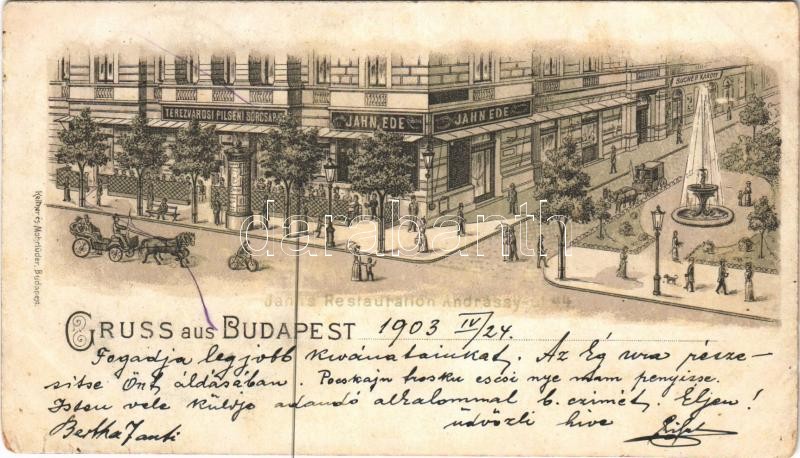 TERÉZVÁROSI PILSENI SÖRCSAR
JAHN EDE
JAHN EDE
BUCHER KÁROLY
darabanth
Jahn's Restauration Andrássy-út 44
Kellner és Mohrlüder, Budapest.
GRUSS aus BUDAPEST 1903 IV/24
Fogadja legjobb kivánatainkat. Az Ég ura része-
sitse Önt áldásában.
Isten vele küldje adandó alkalommal b. czimét. Eljen!
üdvözli hive
Bertha Janti